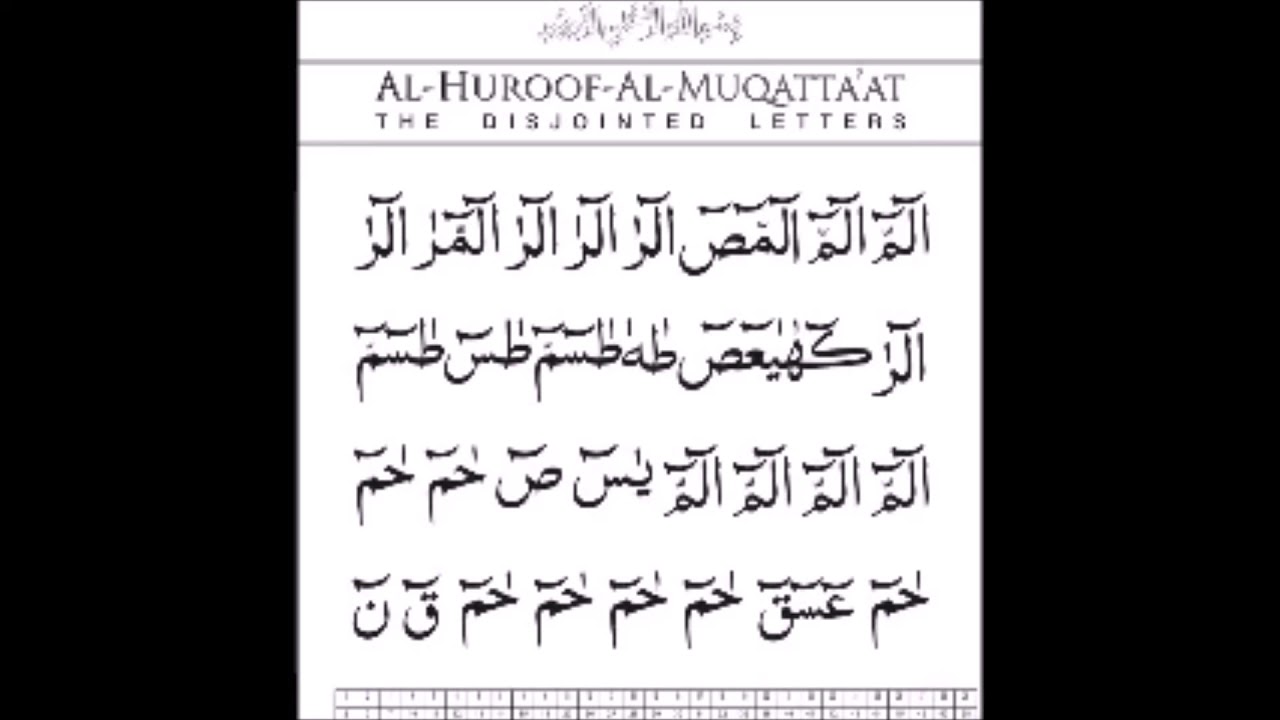 AL-HUROOF-AL-MUQATTA'AT
THE DISJOINTED LETTERS
الٓمّٓ الٓمّٓ الٓمّٓصٓ الٓرٰ الٓرٰ الٓرٰ الٓمّٓرٰ الٓرٰ
الٓرٰ كٓهٰيٰعٓصٓ طٰهٰ طٰسٓمّٓ طٰسٓ طٰسٓمّٓ
الٓمّٓ الٓمّٓ الٓمّٓ الٓمّٓ يٰسٓ صٓ حٰمٓ حٰمٓ
حٰمٓ عٓسٓقٓ حٰمٓ حٰمٓ حٰمٓ حٰمٓ قٓ نٓ